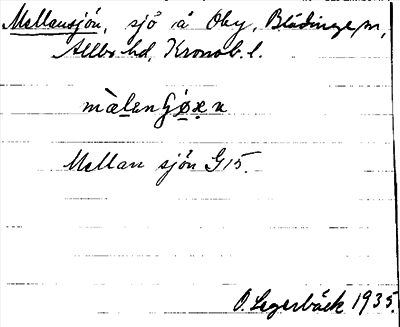 Mellansjön, sjö å Oby, Blädinge sn,
Allbo hd, Kronob. l.
Mellan sjön G15.
O. Legerbäck 1935.